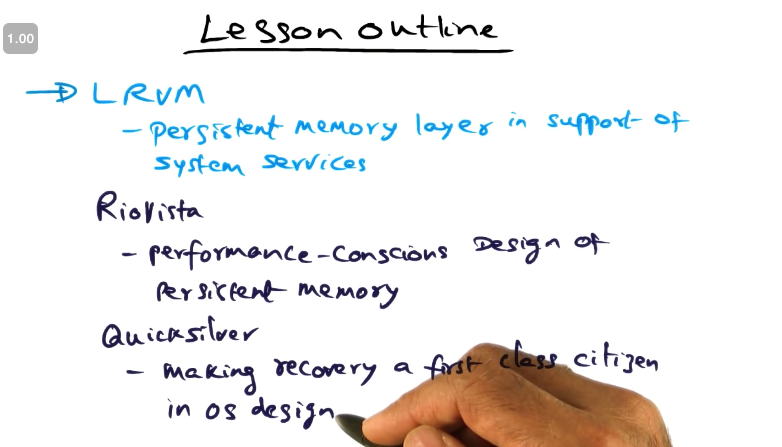 1.00
Lesson outline
LRVM
- Persistent memory layer in support of
system services
RioVista
- performance-conscious Design of
Persistent memory
Quicksilver
- making recovery a first class citizen
in OS design